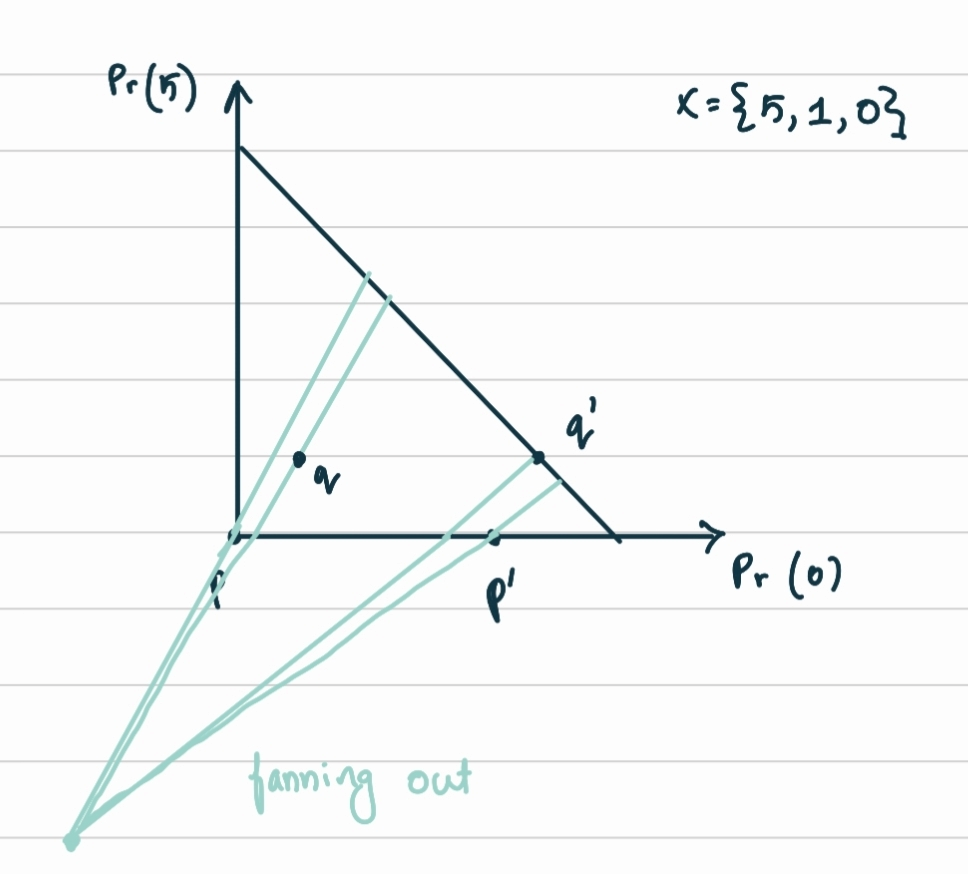 Pr(5)
X={5,1,0}
q'
q
Pr (0)
p
p'
fanning out